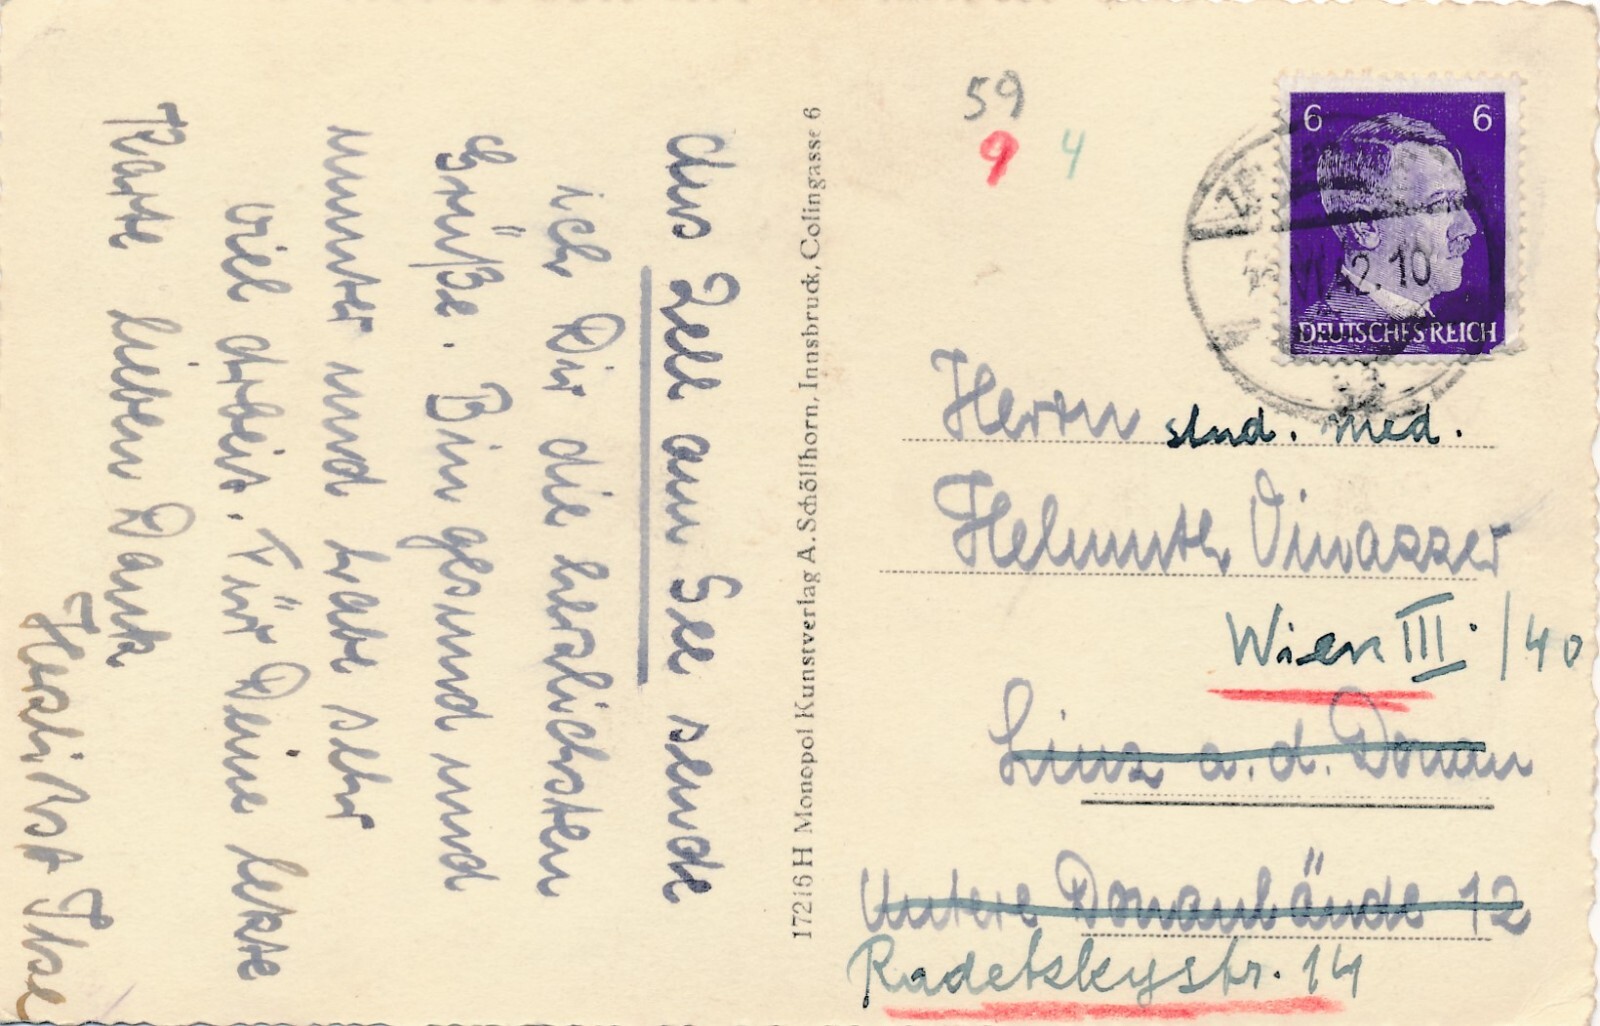 Aus Zell am See sende
ich Dir die herzlichsten
Grüße. Bin gesund und
munter und habe sehr
viel Arbeit. Für Deine letzte
Karte lieben Dank
Herzlichst Ilse
17216 H Monopol Kunstverlag A. Schöllhorn, Innsbruck, Colingasse 6
59
9 4
6 6
DEUTSCHES REICH
VI.42.10
Herrn stud. med.
Helmuth
Wien III. /40
Linz a. d. Donau
Untere Donaulände 12
Radetzkystr. 14